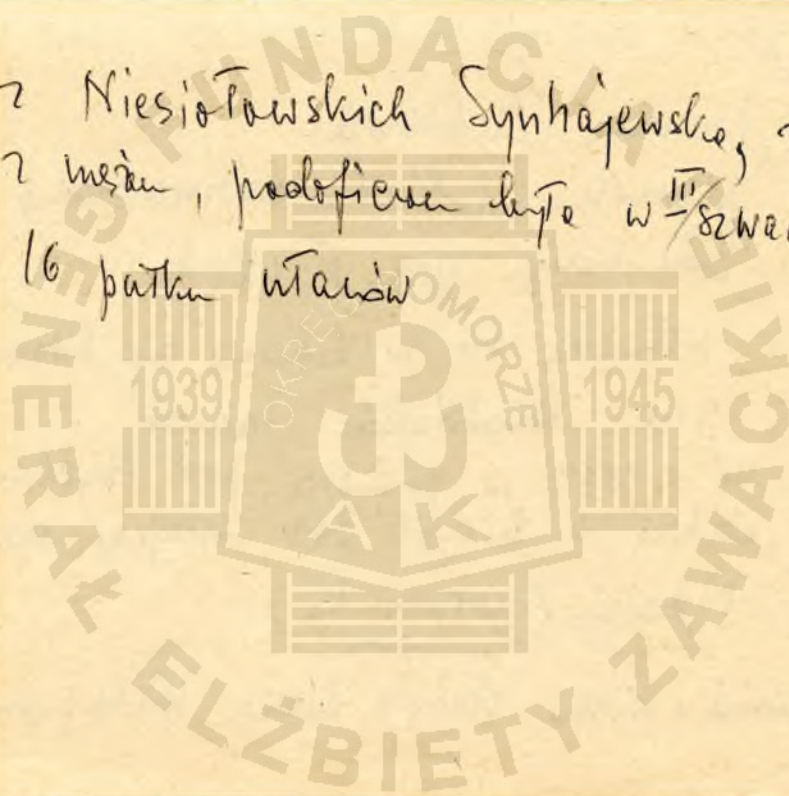 z Niesiołowskich Synkajewska,
z mężem, podoficerem była w III/szwa
16 pułku ułanów
FUNDACJA
GENERAŁ ELŻBIETY ZAWACKIEJ
OKRĘG POMORZE
1939
1945
AK